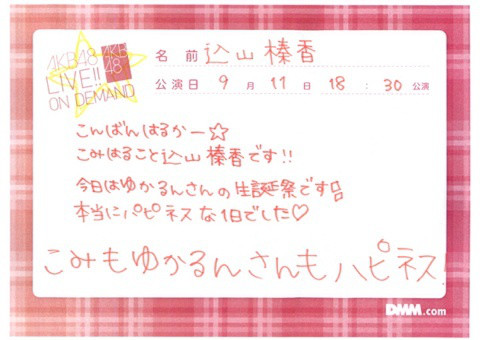 AKB48
LIVE!!
ON DEMAND
AKB
48
名前 込山榛香
公演日 9月11日 18:30公演
こんばんはるかー☆
こみはること込山榛香です!!
今日はゆかるんさんの生誕祭です
本当にハピネスな1日でした♡
こみもゆかるんさんもハピネス!
DMM.com